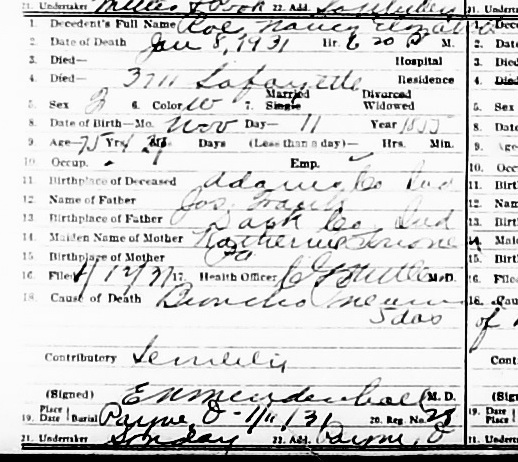 21. Undertaker Miller & Dook 22. Add. 21. Undertaker
1. Decedent's Full Name Roe, Nancy 1. Dece
2. Date of Death Jan 8, 1931 Hr. 6 20 P M. 2. Date
3. Died— Hospital 3. Died
4. Died— 3711 Lafayette Residence 4. Died
Married Divorced
5. Sex F 6. Color W 7. Single Widowed 5. Sex
8. Date of Birth—Mo. Nov Day— 11 Year 1855 8. Date
9. Age—75 Yrs. 1 Ms. 27 Days (Less than a day)— Hrs. Min. 9. Age
10. Occup. Emp. 10. Occ
11. Birthplace of Deceased Adams Co Ind 11. Birth
12. Name of Father Jos. 12. Nam
13. Birthplace of Father Co Ind 13. Birt
14. Maiden Name of Mother Katherine 14. Maid
15. Birthplace of Mother Pa 15. Birt
16. Filed 1/12/31 17. Health Officer M.D. 16. File
18. Cause of Death Broncho Pneum 18. Cau
5 das of
Contributory Senility Cont
(Signed) E N Mendenhall M. D. (Sign
19. Place Date Burial Payne, O - 1/11/31 20. Reg. No. 19. Place Date
21. Undertaker Sonday 22. Add. Payne, O 21. Under